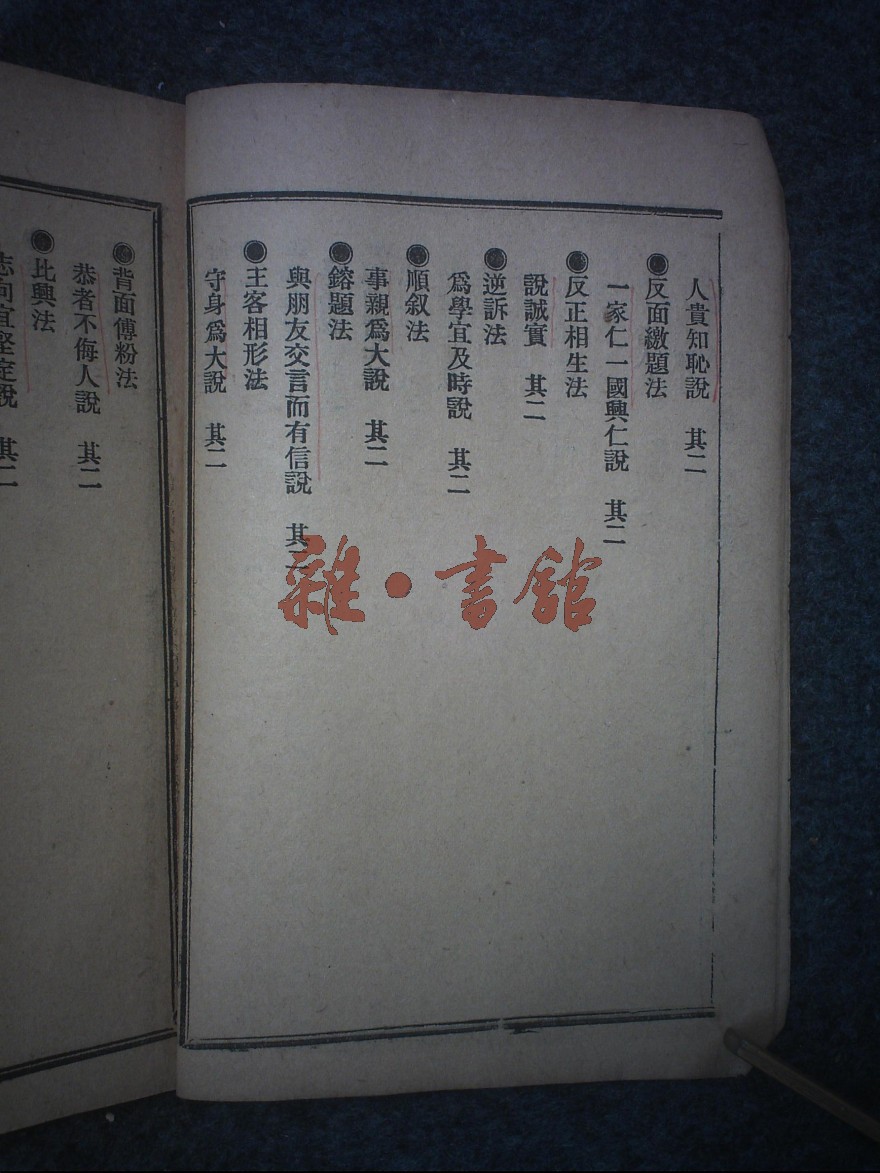 人貴知恥說 其二
●反面繳題法
一家仁一國興仁說 其二
●反正相生法
說誠實 其二
●逆訴法
爲學宜及時說 其二
●順叙法
事親爲大說 其二
●鎔題法
與朋友交言而有信說 其二
●王客相形法
守身爲大說 其二
●背面傅粉法
恭者不侮人說 其二
●比興法
志向宜堅定說 其二
雜·書館